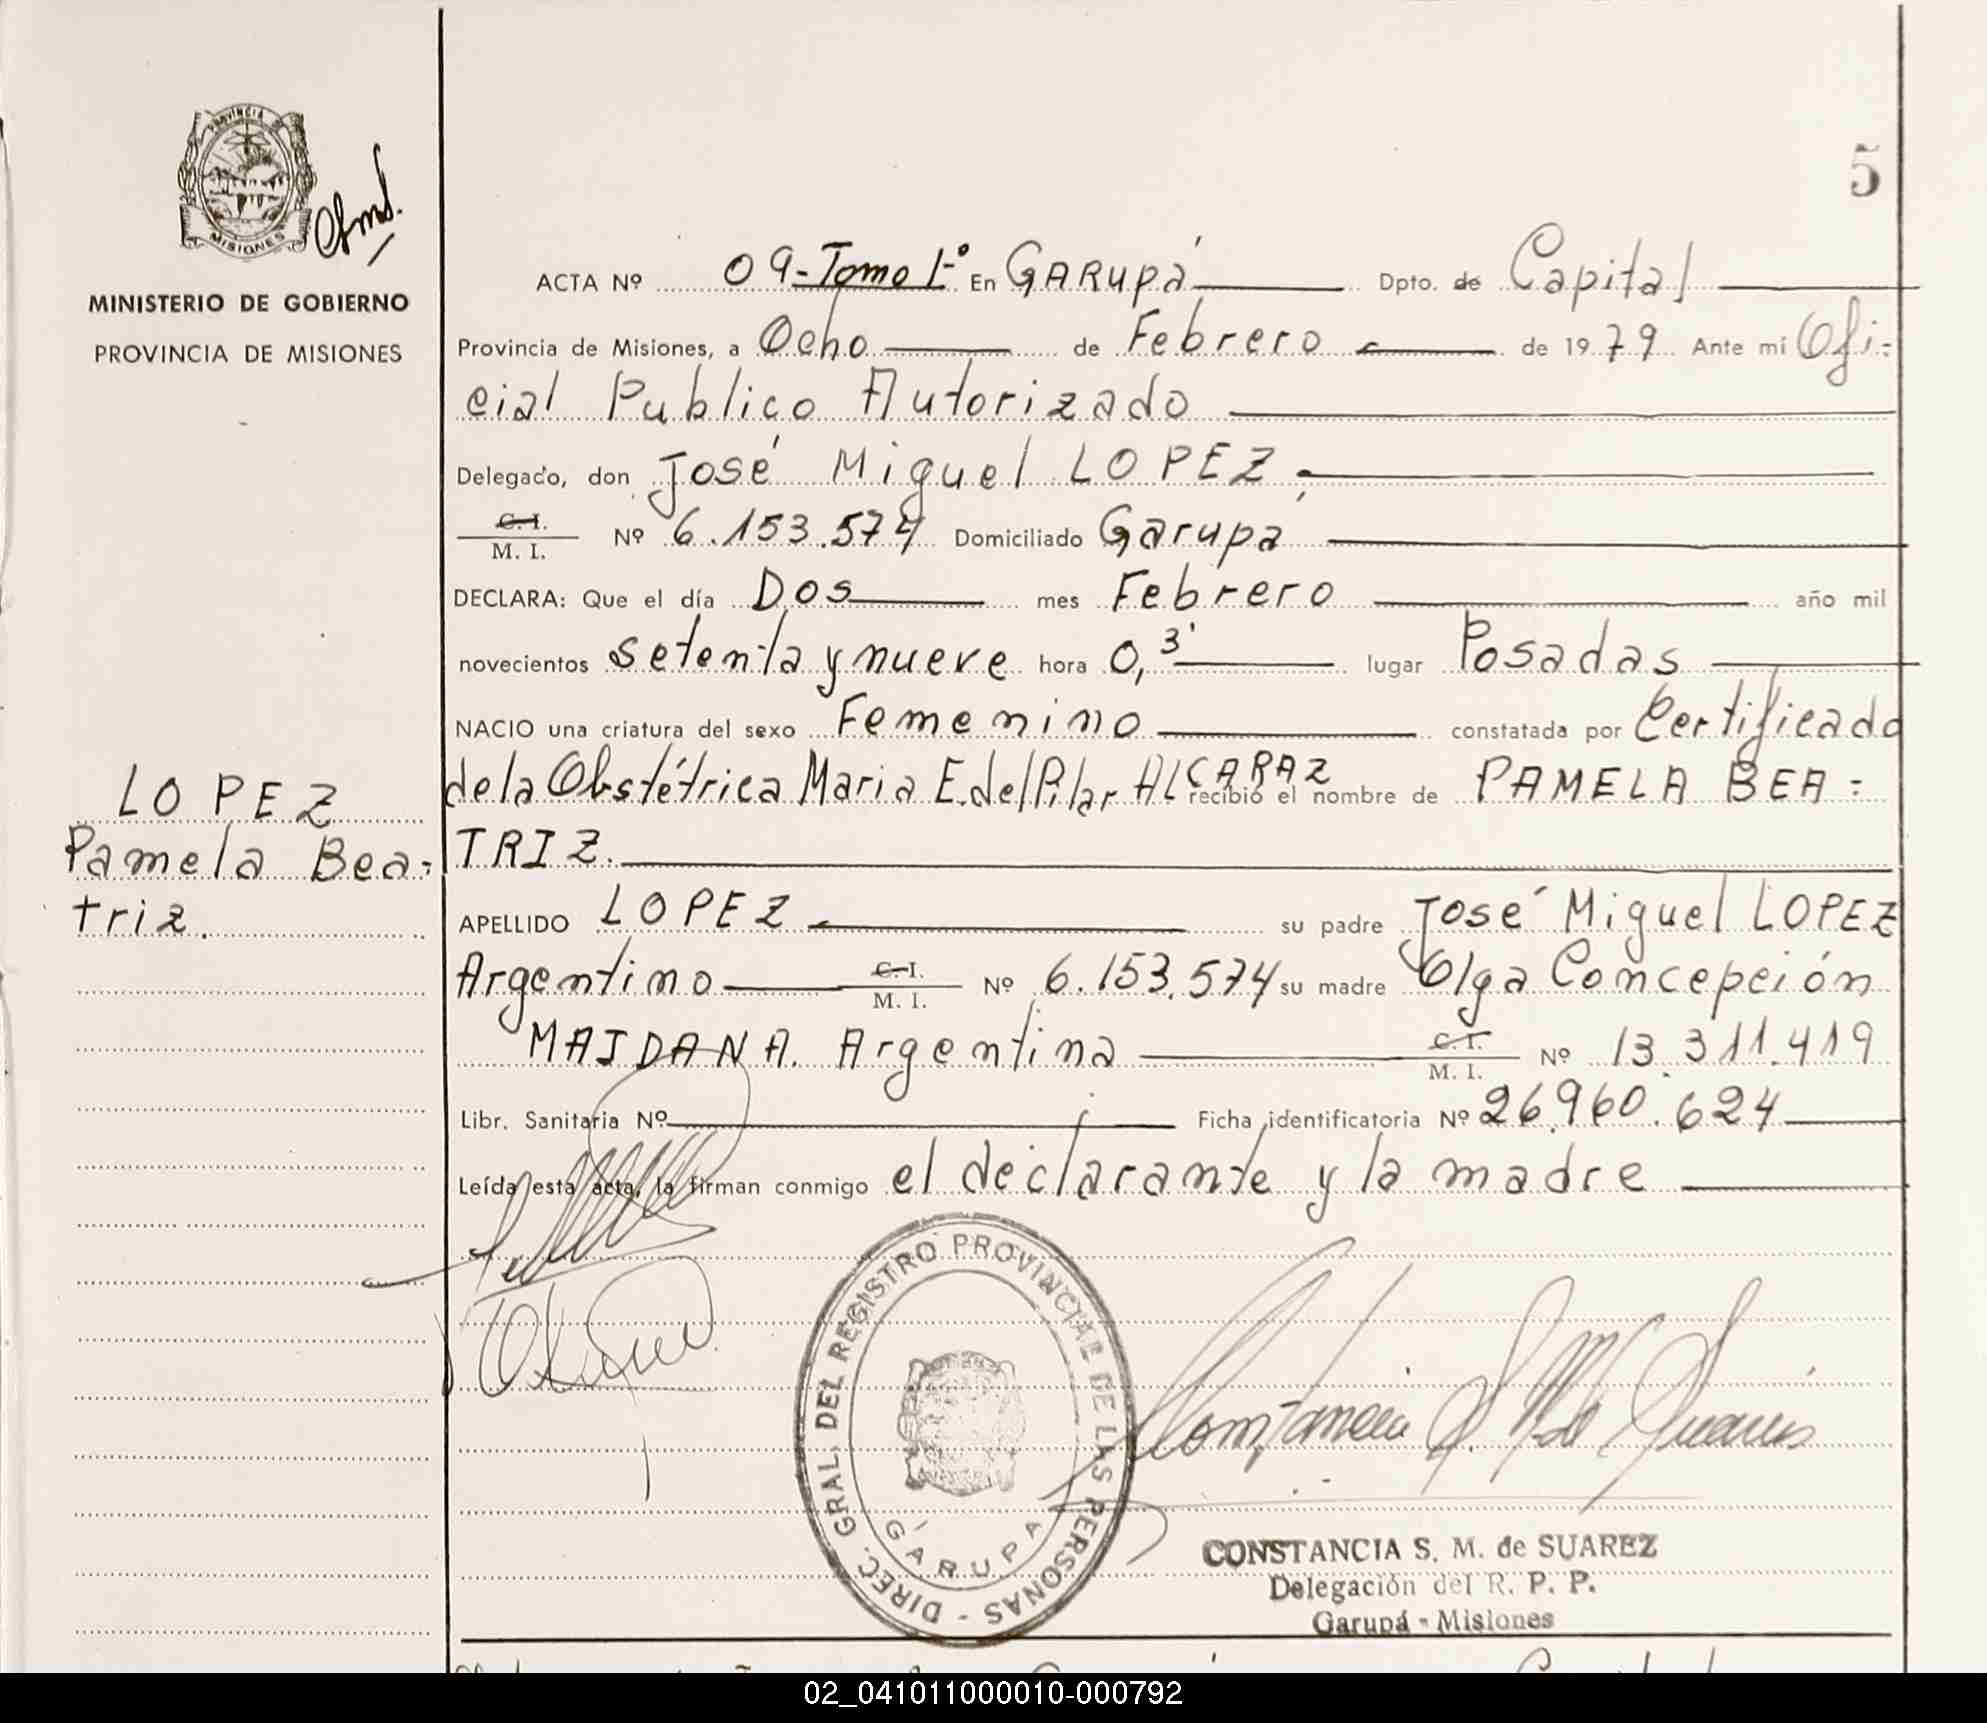 PROVINCIA DE
MISIONES
MINISTERIO DE GOBIERNO
PROVINCIA DE MISIONES
LOPEZ
Pamela Bea=
triz.
5
ACTA Nº 09-Tomo 1-º En GARUPÁ Dpto. de Capital
Provincia de Misiones, a Ocho de Febrero de 1979 Ante mí Ofi=
cial Publico Autorizado
Delegado, don José Miguel LOPEZ,
C. I.
M. I. Nº 6.153.574 Domiciliado Garupá
DECLARA: Que el día Dos mes Febrero año mil
novecientos setenta y nueve hora 0,3' lugar Posadas
NACIO una criatura del sexo Femenino constatada por Certificado
de la Obstétrica Maria E. del Pilar ALCARAZ recibió el nombre de PAMELA BEA=
TRIZ.
APELLIDO LOPEZ su padre José Miguel LOPEZ
Argentino C. I. M. I. Nº 6.153.574 su madre Olga Concepción
MAIDANA. Argentina C. I. M. I. Nº 13.311.419
Libr. Sanitaria Nº Ficha identificatoria Nº 26.960.624
Leída esta acta, la firman conmigo el declarante y la madre
DIREC. GRAL. DEL REGISTRO PROVINCIAL DE LAS PERSONAS -
GARUPÁ
Constancia S. M. de Suarez
CONSTANCIA S. M. de SUAREZ
Delegación del R. P. P.
Garupá - Misiones
02_041011000010-000792